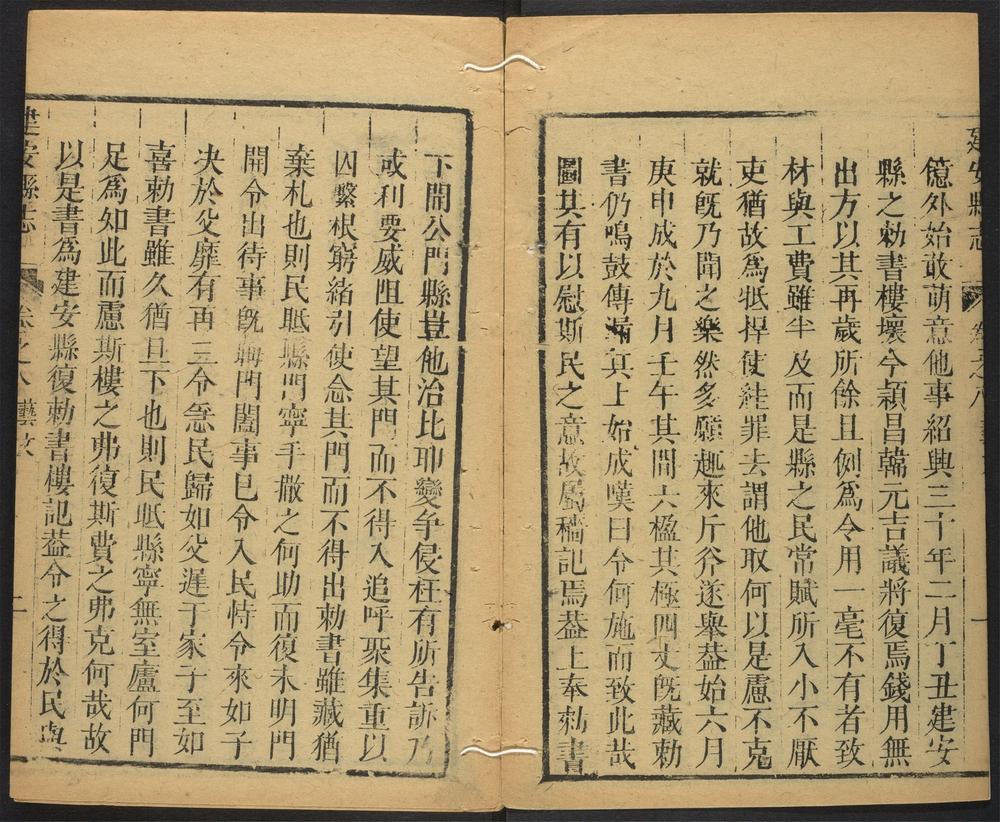 建安縣志 卷之八 一
億外始敢萌意他事紹興三十年二月丁丑建安
縣之勅書樓壞今潁昌韓元吉議將復焉錢用無
出方以其再歲所餘且例爲令用一毫不有者致
材與工費雖半及而是縣之民常賦所入小不厭
吏猶故爲牴捍使絓罪去謂他取何以是慮不克
就旣乃聞之樂然多願趣來斤斧遂舉葢始六月
庚申成於九月壬午其間六楹其極四丈旣藏勅
書仍鳴鼓傳漏其上始成嘆曰令何施而致此哉
圖其有以慰斯民之意故屬穡記焉葢上奉勅書
下開公門縣豈他治比耶變争侵枉有所告訴乃
或利要威阻使望其門而不得入追呼聚集重以
囚繫根窮緒引使念其門而不得出勅書雖藏猶
棄札也則民眂縣門寧手撤之何助而復未明門
開令出待事旣晦門闔事已令入民恃令來如子
决於父靡有再三令急民歸如父遲于家子至如
喜勅書雖久猶且下也則民眂縣寧無室廬何門
足爲如此而慮斯樓之弗復斯費之弗克何哉故
以是書爲建安縣復勅書樓記葢令之得於民與
建安縣志 卷之八 藝文 二